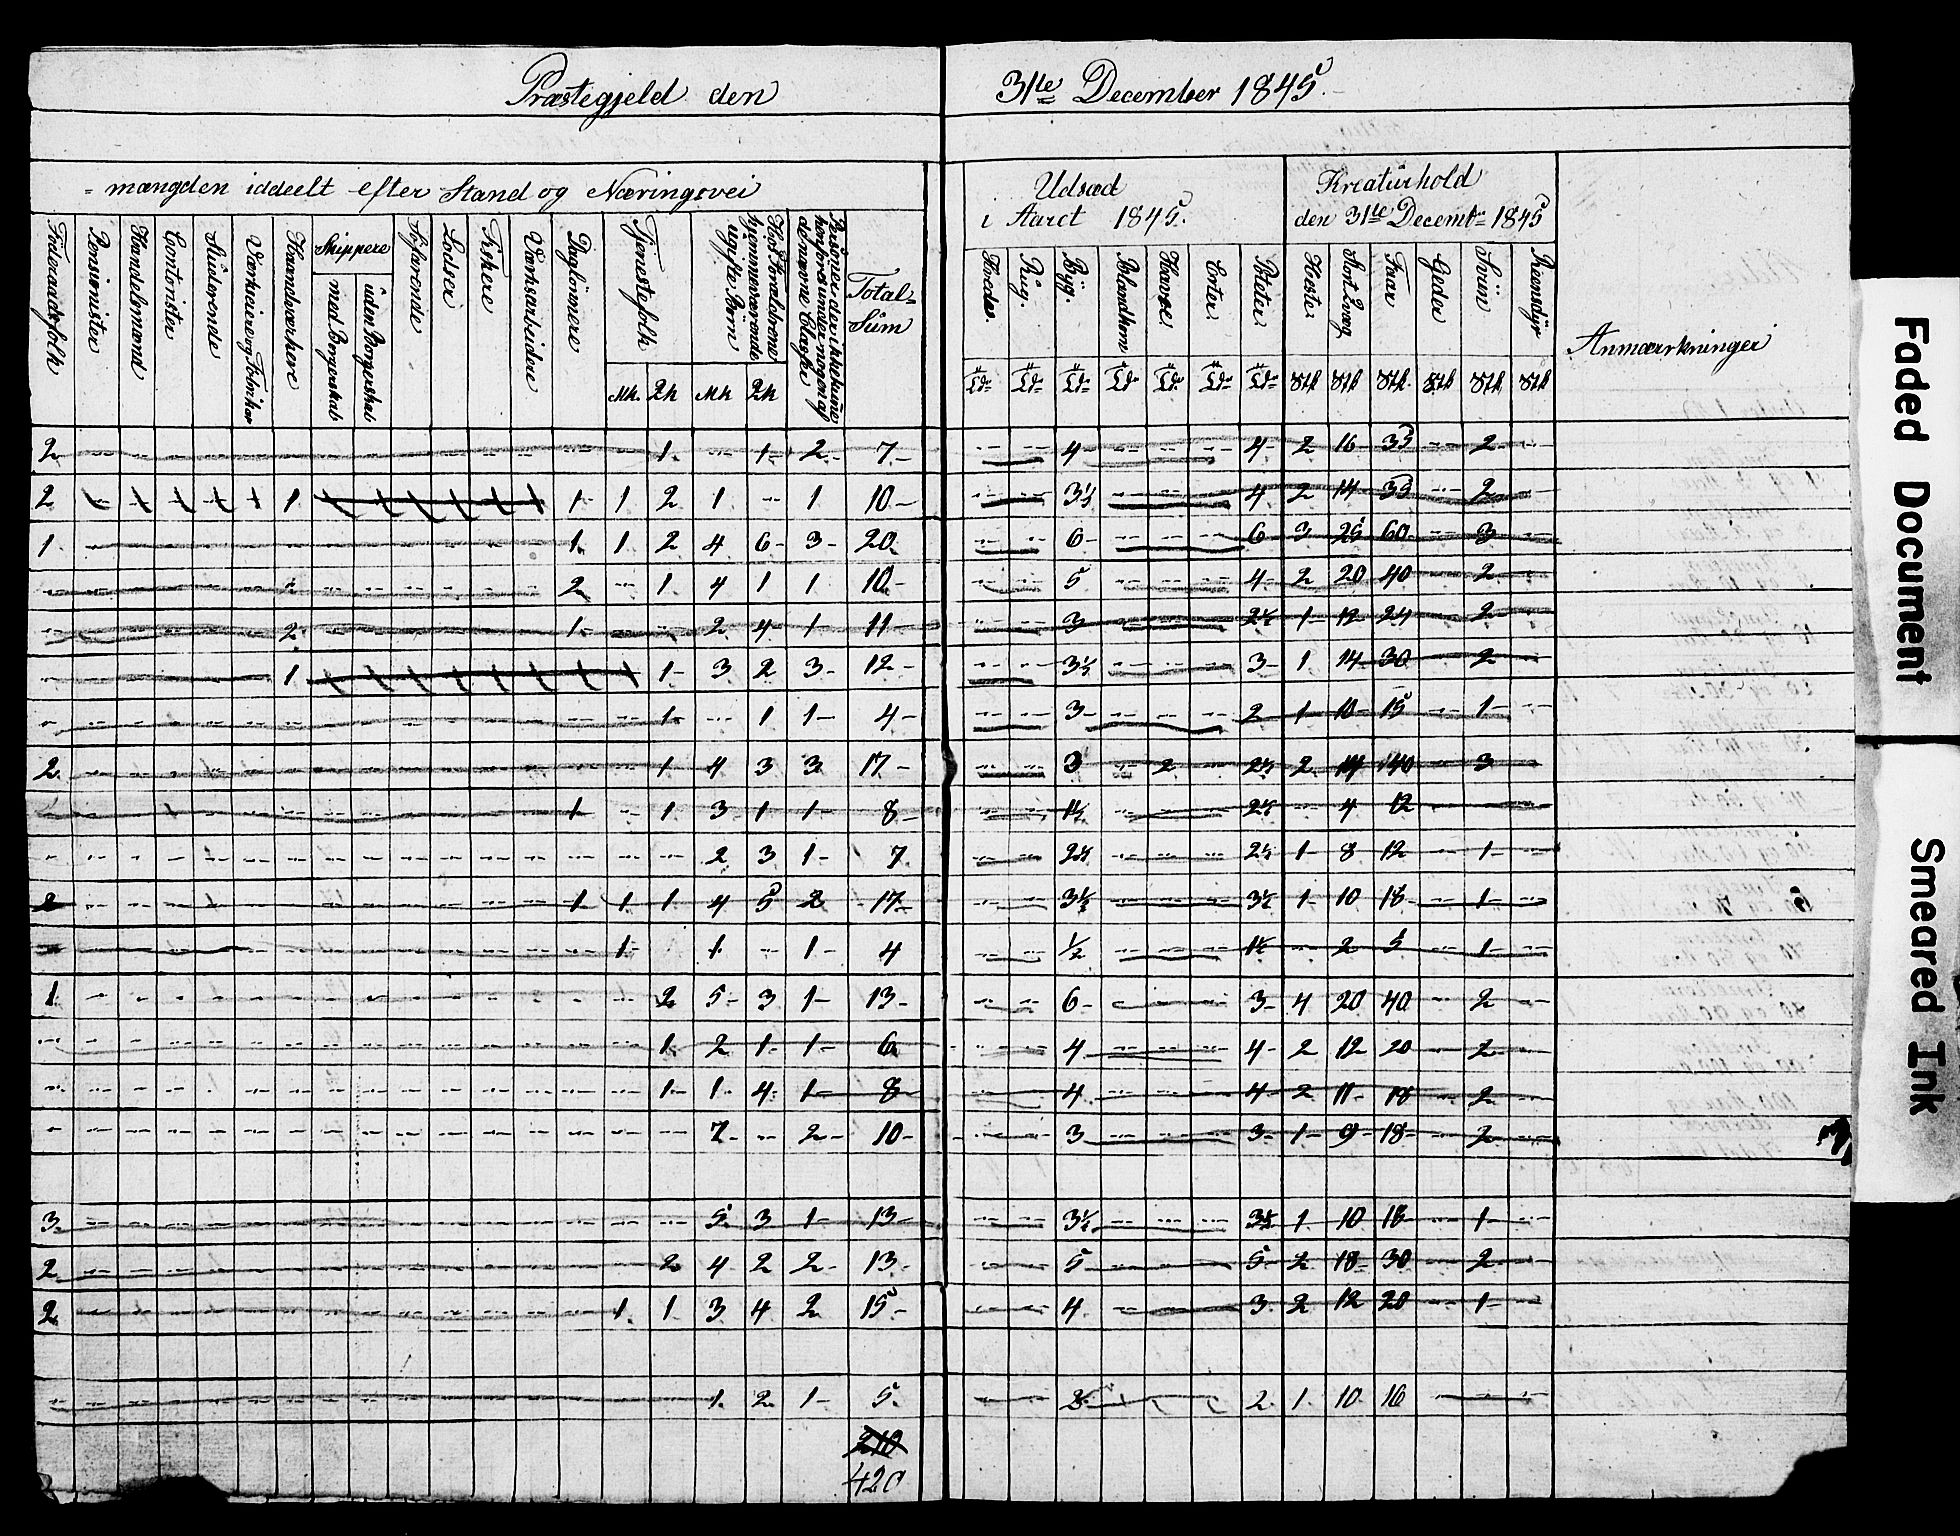 Præstegjeld den 31te December 1845.
- mængden iddeelt efter Stand og Næringsvei
Udsæd i Aaret 1845.
Kreaturhold den 31te Decembr 1845
Foderaadsfolk
Pensionister
Handelsmænd
Contorister
Studerende
Værkseiere og
Haandværkere
Skippere
med Borgerskab
uden Borgerskab
Söfarende
Lodser
Fiskere
Værksarbeidere
Daglönnere
Tjenestefolk
Mk. Qk
Hos Forældrene hjemmeværende ugifte Börn
Mk Qk
Personer der ikke kunne henföres under nogen af de nævnte Classer
Total-Sum
Hvede.
Rug.
Byg.
Blandkorn
Havre.
Erter.
Poteter.
Heste.
Stort Qvæg
Faar
Geder
Sviin
Reensdyr
Anmærkninger
2 1. 1- 2- 7- 4- 4- 2 16 35 2-
2 1 1- 1 2 1 1 10- 3½ 4 2 14 35 2
1. 1. 1 2 4 6- 3- 20. 6- 6 3 25 60 3
2 1 4 1 1 10- 5 4- 2 20 40 2-
2. 1- 2 4- 1- 11- 3 2½ 1 12 24 2
1 1- 3 2 3- 12- 3½ 3- 1 14 30 2
1- 1 1- 4- 3- 2 1 10 15 1-
2. 1 4 3 3 17- 3 2 2½ 2 14 140 3
1 1 3 1 1- 8- 1½ 2½ 4 12
2 3 1- 7. 2½ 2½ 1 8 12 1-
2 1 1 1 4 5 2 17- 3½ 3½ 1 10 18 1
1- 1 1- 4 ½ 1½ 2 5 1-
1 2 5- 3 1- 13- 6- 3- 4 20 40 2
1. 2 1- 1- 6 4 4- 2 12 20 2
1- 1- 4- 1- 8- 4 4 2 11 18 2
7- 2- 10- 3 3- 1 9 18 2-
3. 5- 3 1- 13- 3½ 3½ 1 10 18 1-
2 2 4 2 2- 13- 5 5- 2 18 30 2
2 1. 1 3 4 2 15- 4 3 2 12 20 1-
1. 2 1- 5. 2 2 1. 10. 16
210
420
Faded Document
Smeared Ink